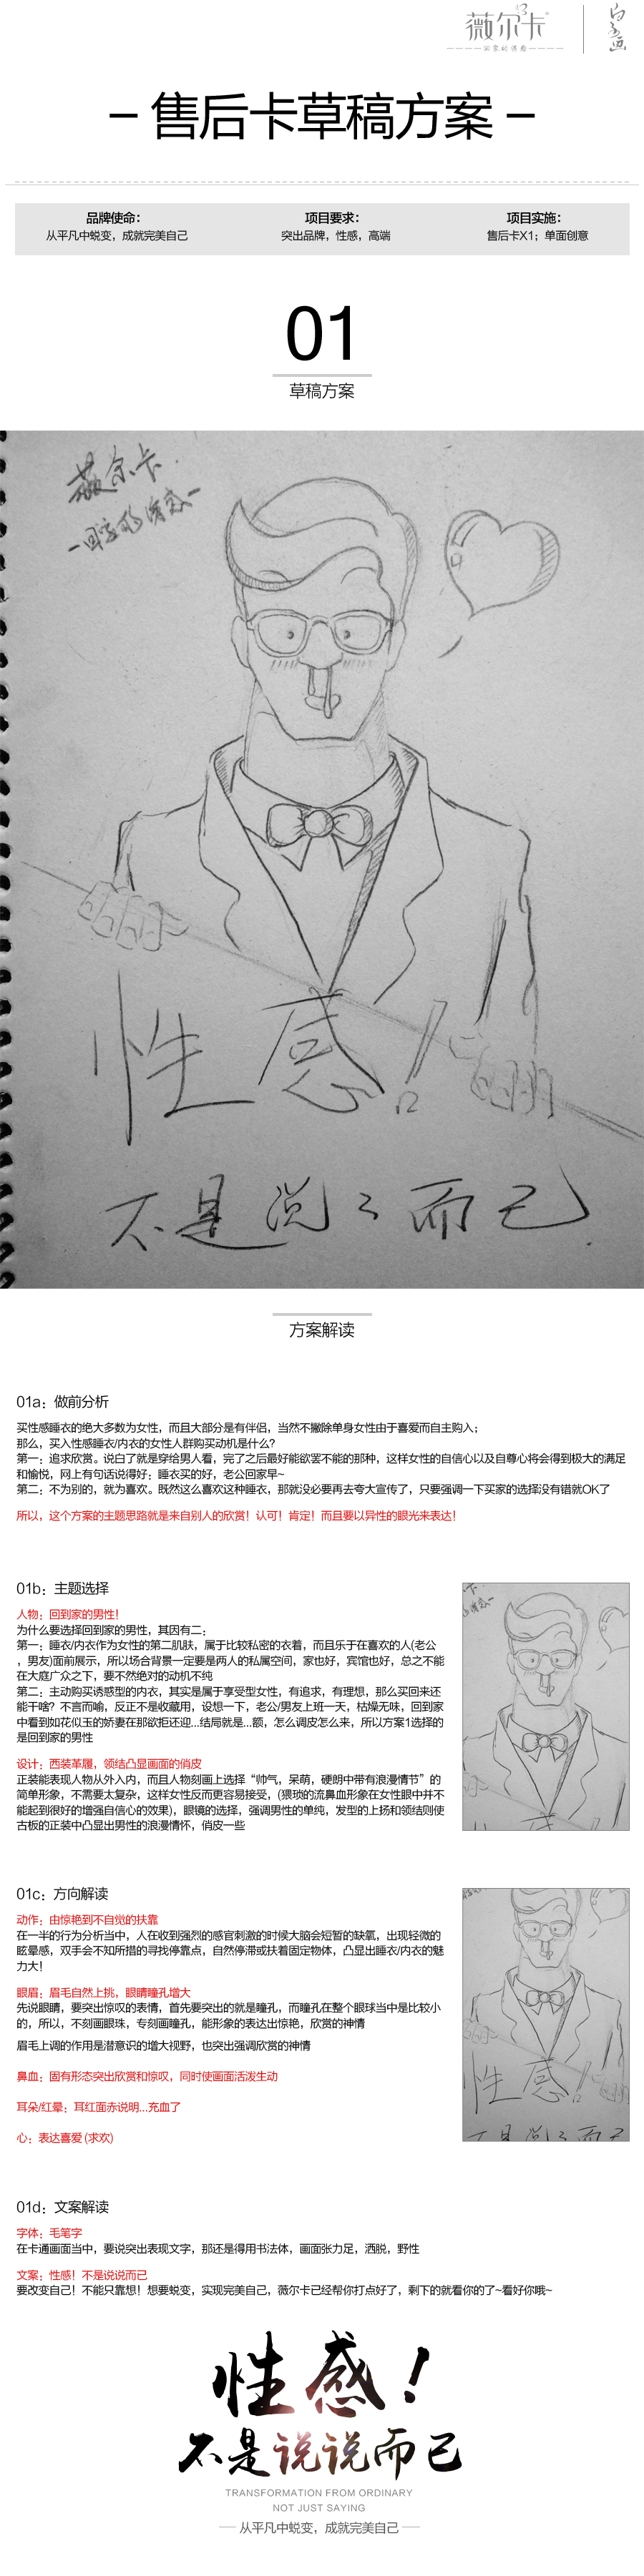 薇尔卡
回家的诱惑
白金画
- 售后卡草稿方案 -
品牌使命：
从平凡中蜕变，成就完美自己
项目要求：
突出品牌，性感，高端
项目实施：
售后卡X1；单面创意
01
草稿方案
薇尔卡
-回家的诱惑-
性感！
不是说说而已
方案解读
01a：做前分析
买性感睡衣的绝大多数为女性，而且大部分是有伴侣，当然不撇除单身女性由于喜爱而自主购入；
那么，买入性感睡衣/内衣的女性人群购买动机是什么？
第一：追求欣赏。说白了就是穿给男人看，完了之后最好能欲罢不能的那种，这样女性的自信心以及自尊心将会得到极大的满足
和愉悦，网上有句话说得好：睡衣买的好，老公回家早~
第二：不为别的，就为喜欢。既然这么喜欢这种睡衣，那就没必要再去夸大宣传了，只要强调一下买家的选择没有错就OK了
所以，这个方案的主题思路就是来自别人的欣赏！认可！肯定！而且要以异性的眼光来表达！
01b：主题选择
人物：回到家的男性！
为什么要选择回到家的男性，其因有二：
第一：睡衣/内衣作为女性的第二肌肤，属于比较私密的衣着，而且乐于在喜欢的人(老公
，男友)面前展示，所以场合背景一定要是两人的私属空间，家也好，宾馆也好，总之不能
在大庭广众之下，要不然绝对的动机不纯
第二：主动购买诱惑型的内衣，其实是属于享受型女性，有追求，有理想，那么买回来还
能干啥？不言而喻，反正不是收藏用，设想一下，老公/男友上班一天，枯燥无味，回到家
中看到如花似玉的娇妻在那欲拒还迎...结局就是...额，怎么调皮怎么来，所以方案1选择的
是回到家的男性
设计：西装革履，领结凸显画面的俏皮
正装能表现人物从外入内，而且人物刻画上选择“帅气，呆萌，硬朗中带有浪漫情节”的
简单形象，不需要太复杂，这样女性反而更容易接受，(猥琐的流鼻血形象在女性眼中并不
能起到很好的增强自信心的效果)，眼镜的选择，强调男性的单纯，发型的上扬和领结则使
古板的正装中凸显出男性的浪漫情怀，俏皮一些
01c：方向解读
动作：由惊艳到不自觉的扶靠
在一半的行为分析当中，人在收到强烈的感官刺激的时候大脑会短暂的缺氧，出现轻微的
眩晕感，双手会不知所措的寻找停靠点，自然停滞或扶着固定物体，凸显出睡衣/内衣的魅
力大！
眼眉：眉毛自然上挑，眼睛瞳孔增大
先说眼睛，要突出惊叹的表情，首先要突出的就是瞳孔，而瞳孔在整个眼球当中是比较小
的，所以，不刻画眼珠，专刻画瞳孔，能形象的表达出惊艳，欣赏的神情
眉毛上调的作用是潜意识的增大视野，也突出强调欣赏的神情
鼻血：固有形态突出欣赏和惊叹，同时使画面活泼生动
耳朵/红晕：耳红面赤说明...充血了
心：表达喜爱 (求欢)
01d：文案解读
字体：毛笔字
在卡通画面当中，要说突出表现文字，那还是得用书法体，画面张力足，洒脱，野性
文案：性感！不是说说而已
要改变自己！不能只靠想！想要蜕变，实现完美自己，薇尔卡已经帮你打点好了，剩下的就看你的了~看好你哦~
性感！
不是说说而已
TRANSFORMATION FROM ORDINARY
NOT JUST SAYING
从平凡中蜕变，成就完美自己